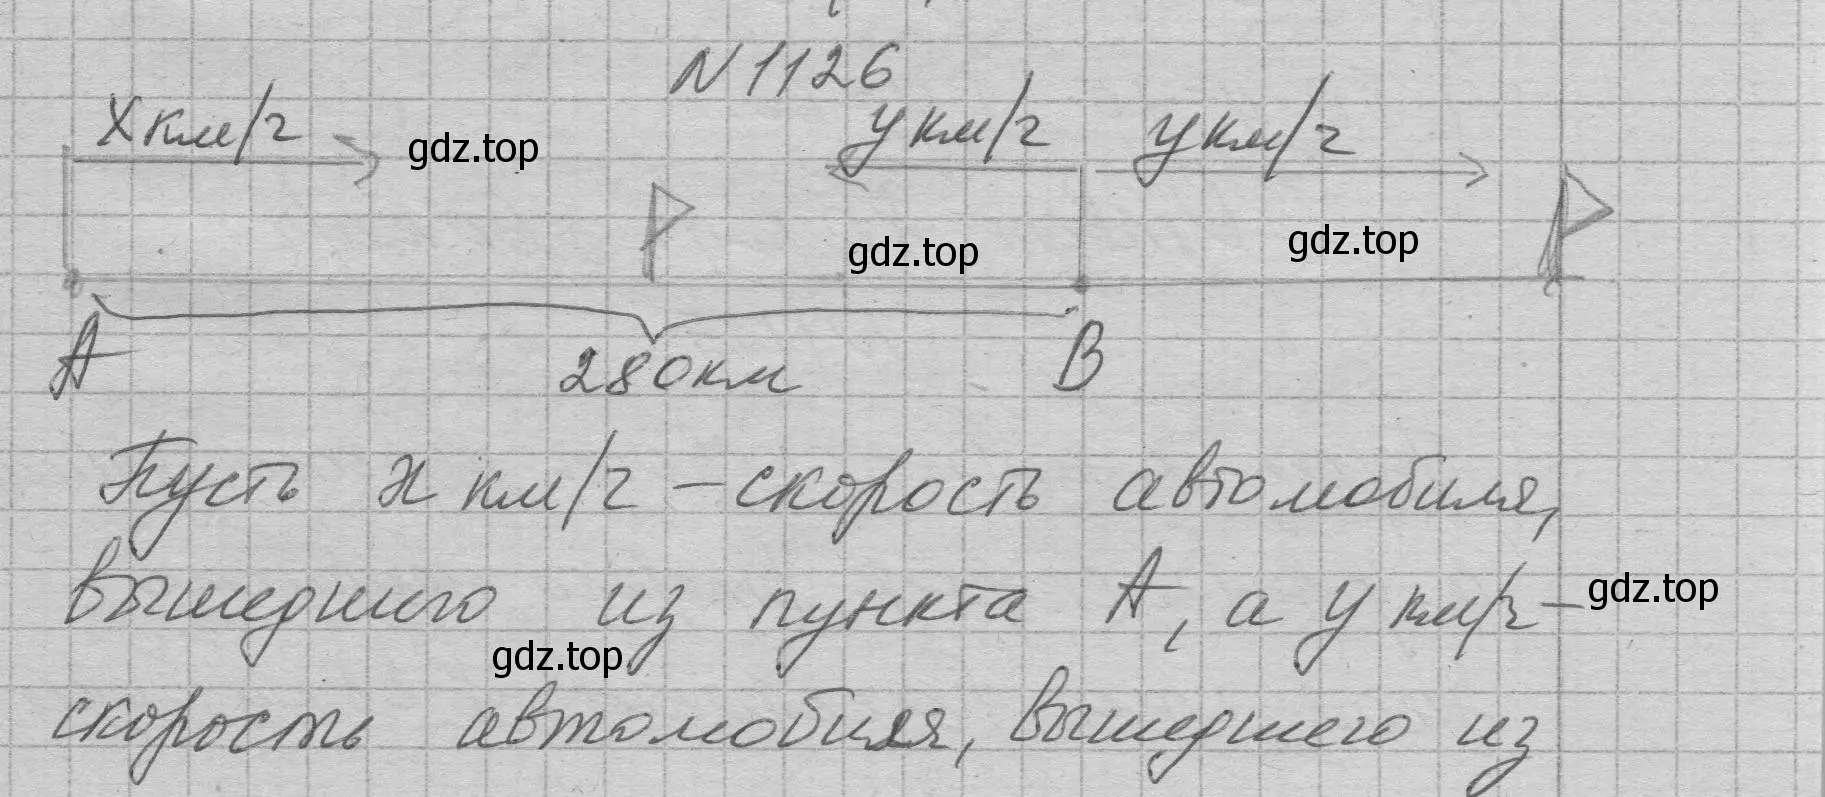 N 1126
х км/ч
у км/ч
у км/ч
gdz.top
gdz.top
gdz.top
А
280 км
В
Пусть х км/ч – скорость автомобиля,
вышедшего из пункта А, а у км/ч –
gdz.top
gdz.top
скорость автомобиля, вышедшего из